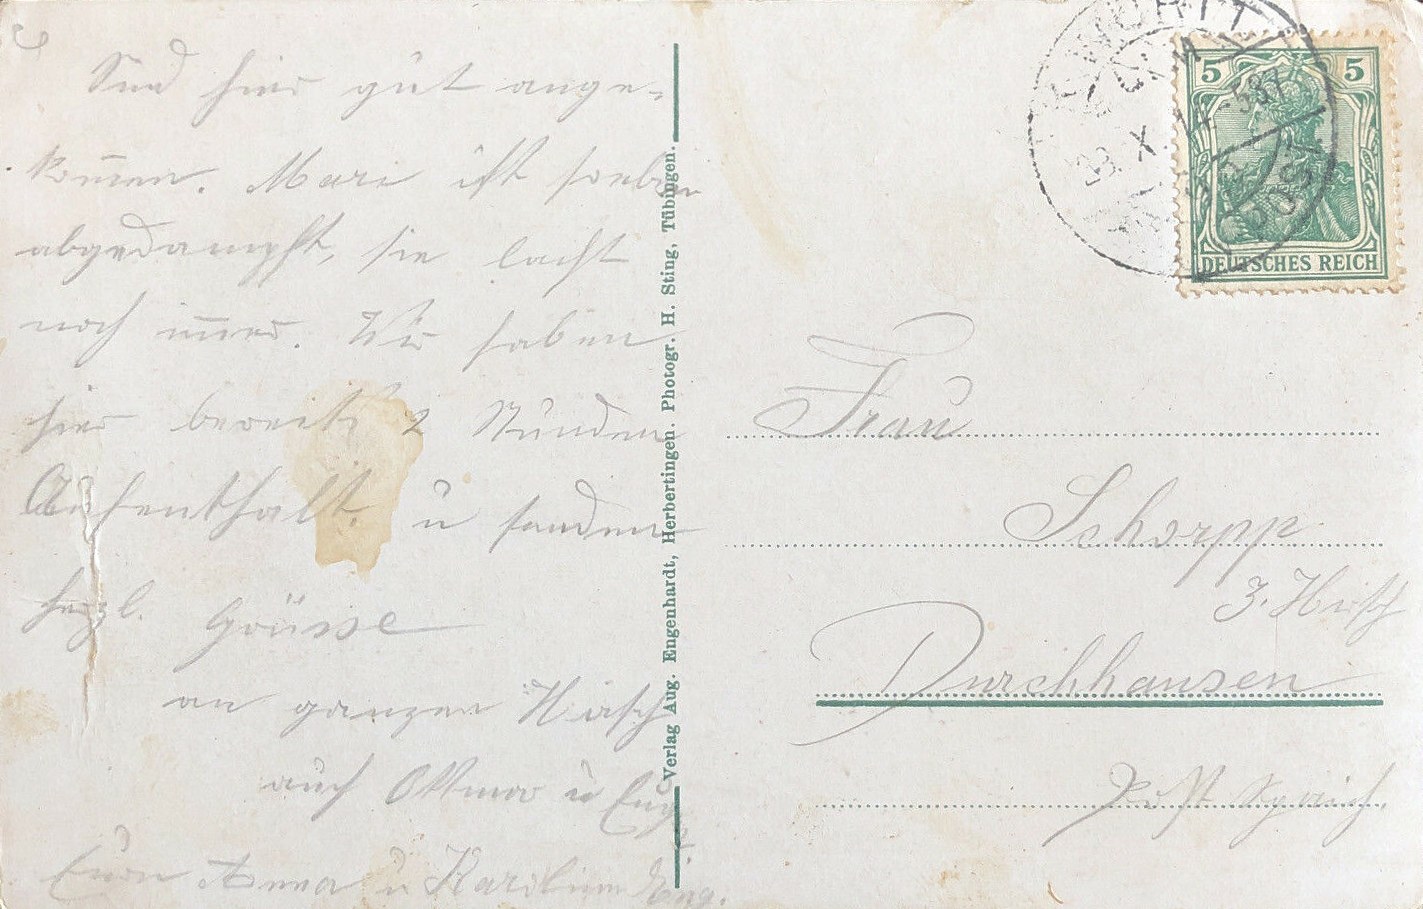 Sind hier gut ange-
kom̅en. Mari ist soeben
abgedampft, sie lacht
noch im̅er. Wir haben
hier bereits 2 Stunden
Aufenthalt. u senden
herzl. Grüsse
an ganzen Hirsch
auch Ottmar u Eug.
Euere Anna u Karoline Eug.
Verlag Aug. Engenhardt, Herbertingen. Photogr. H. Sting, Tübingen.
5 5
DEUTSCHES REICH
Frau
Schorpp
z. Hirsch
Durchhausen
Post Spaich.